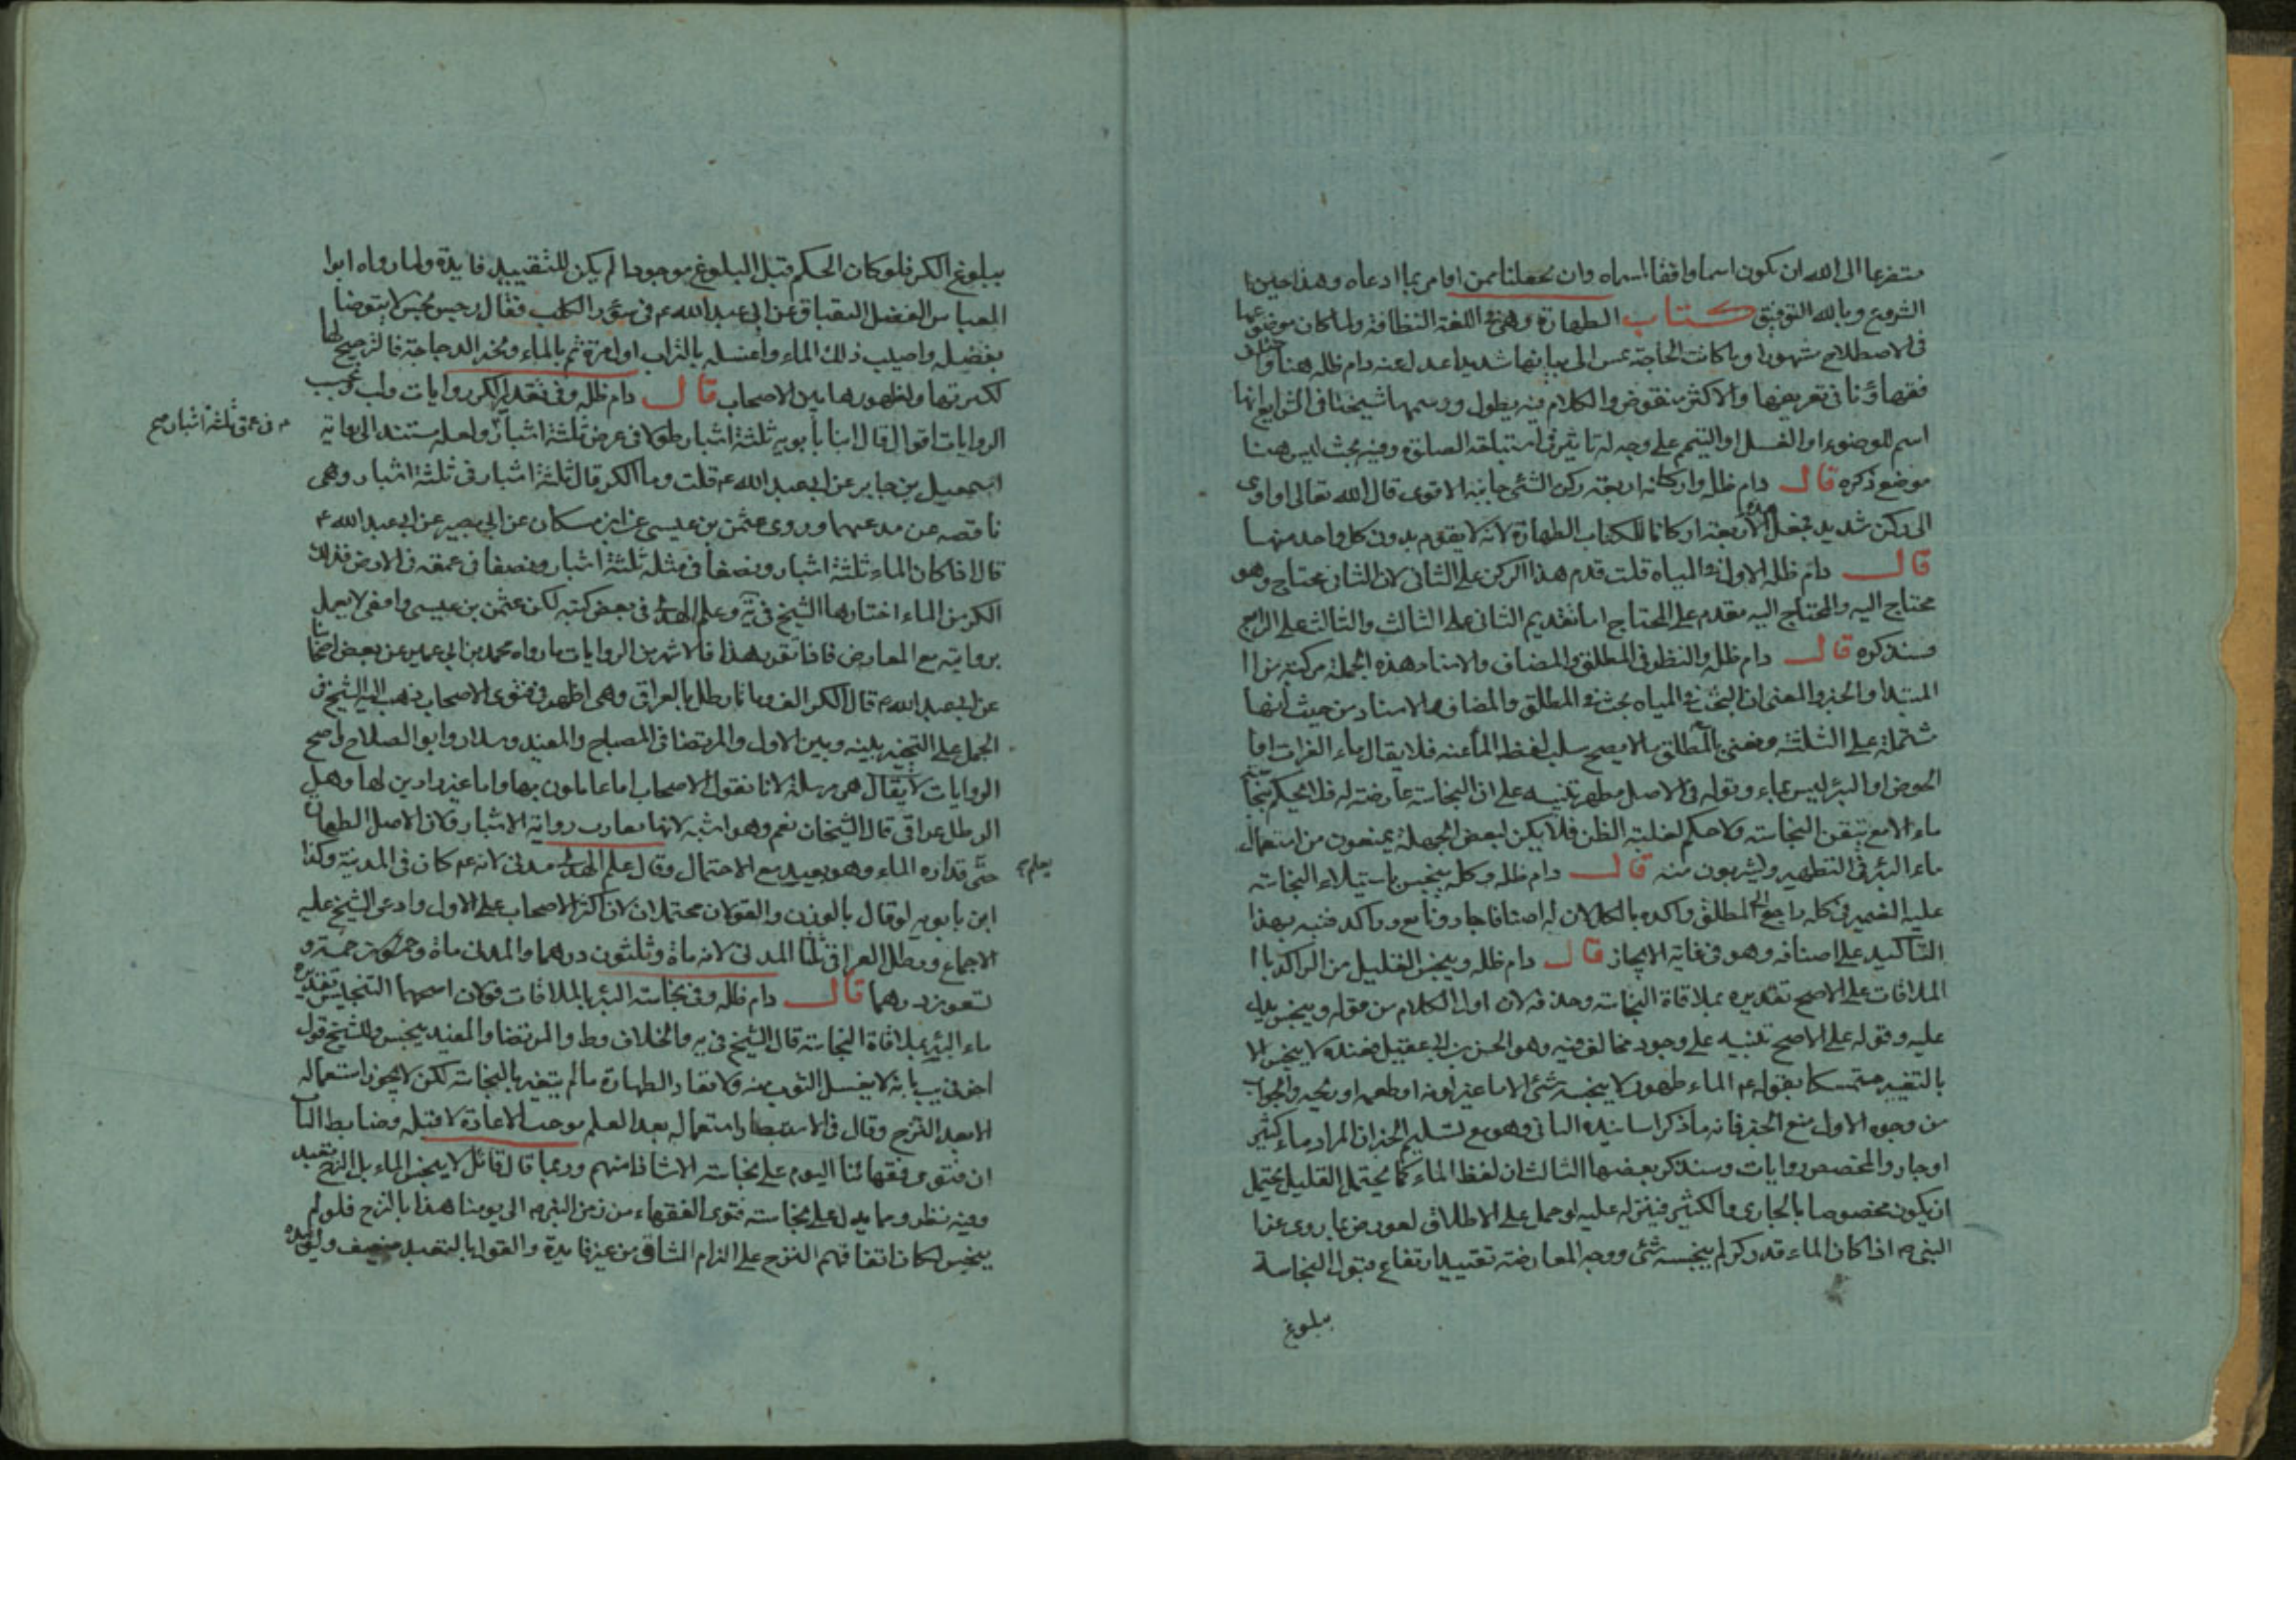 متضرعا الى الله ان يكون اسما وافقا لمسماه وان يجعلنا ممن اوامر بما ادعاه وهذا حين
الشروع وبالله التوفيق كتاب الطهارة وهى فى اللغة النظافة ولما كان موضوعها
فى الاصطلاح مشهورا وما كانت الحاجة تمس الى بيانها شديدا عدل عنه دام ظله هنا وخاض
فقهاؤنا فى تعريفها والاكثر منقوض والكلام فيه يطول ورسمها شيخنا فى الشرايع انها
اسم للوضوء او الغسل او التيمم على وجه له تاثير فى استباحة الصلوة وفيه بحث ليس هنا
موضع ذكره قال دام ظله واركانه اربعة ركن الشئ جانبه الاقوى قال الله تعالى او اوى
الى ركن شديد فجعل الاربعة اركانا لكتاب الطهارة لانه لا يقوم بدون كل واحد منها
قال دام ظله الاول فى المياه قلت قدم هذا الركن على الثانى لان الثانى محتاج وهو
محتاج اليه والمحتاج اليه مقدم على المحتاج اما تقديم الثانى على الثالث والثالث على الرابع
فسنذكره قال دام ظله والنظر فى المطلق والمضاف والاسناد هذه الجملة مركبة من ا
المبتدا والخبر والمعنى ان البحث فى المياه بحث فى المطلق والمضاف والاسناد من حيث انها
مشتملة على الثلثة ومعنى بالمطلق ما لا يصح سلب لفظ الماء عنه فلا يقال ماء الفرات او ما
الحوض او البئر ليس بماء وقوله فى الاصل مطهر تنبيه على ان النجاسة عارضة له فلا يحكم بنجاسة
ماء الا مع تيقن النجاسة ولا حكم لغلبة الظن فلا يكن لبعض الجهلة يمنعون من استعمال
ماء البئر فى التطهير ويشربون منه قال دام ظله وكله ينجس باستيلاء النجاسة
عليه الضمير فى كله راجع الى المطلق واكده بالكل لان له اصنافا جار ونابع وراكد فنبه بهذا
التاكيد على اصنافه وهو فى غاية الايجاز قال دام ظله وينجس القليل من الراكد با ا
الملاقات على الاصح تقديره بملاقاة النجاسة وحذفه لان اول الكلام من قوله وينجس يدل
عليه وقوله على الاصح تنبيه على وجود مخالف فيه وهو الحسن بن ابى عقيل فعنده لا ينجس الا
بالتغير متمسكا بقوله عم الماء طهور لا ينجسه شئ الا ما غير لونه او طعمه او ريحه والجواب
من وجوه الاول منع الخبر فانه ما ذكر اسانيده الثانى وهو مع تسليم الخبر ان المراد ماء كثير
او جار والمخصص روايات وسنذكر بعضها الثالث ان لفظ الماء كما يحتمل القليل يحتمل
ان يكون مخصوصا بالجارى والكثير فينزله عليه او حمل على الاطلاق لعورض بما روى عن ا
النبى ص اذا كان الماء قدر كر لم ينجسه شئ ووجه المعارضة تقييد ارتفاع قبول النجاسة
ببلوغ
ببلوغ الكر فلو كان الحكم قبل البلوغ موجودا لم يكن للتقييد فايدة ولما رواه ابوا
العباس الفضل البقباق عن ابى عبد الله عم فى سؤر الكلب فقال رجس نجس لا يتوضا
بفضله واصبب ذلك الماء واغسله بالتراب اول مرة ثم بالماء
لكثرتها ولظهورها بين الاصحاب قال دام ظله وفى تقدير الكر روايات
الروايات اقوال قال ابنا بابويه ثلثة اشبار طولا فى عرض ثلثة اشبار ولعله مستند الى رواية
م فى عمق ثلثة اشبار صح
اسمعيل بن جابر عن ابى عبد الله عم قلت وما الكر قال ثلثة اشبار فى ثلثة اشبار وهى
ناقصه عن مدعيها وروى عثمن بن عيسى عن ابن مسكان عن ابى بصير عن ابى عبد الله عم
قال اذا كان الماء ثلثة اشبار ونصفا فى مثله ثلثة اشبار ونصفا فى عمقه فى الارض فذلك
الكر من الماء اختارها الشيخ فى يه وعلم الهدى فى بعض كتبه لكن عثمن بن عيسى واقفى لا يعمل
بروايته مع المعارض فاذا تقرر هذا فالاشهر من الروايات ما رواه محمد بن ابى عمير عن بعض اصحابنا
عن ابى عبد الله عم قال الكر الف ومائتا رطل بالعراقى وهى اظهر فى فتوى الاصحاب ذهب اليه الشيخ فى
الجمل على التخيير بينه وبين الاول والمرتضا فى المصباح والمفيد وسلار وابو الصلاح
الروايات لا يقال هى مرسلة لانا نقول الاصحاب اما عاملون بها واما غير رادين لها وهل
الرطل عراقى قال الشيخان نعم وهو اشبه لانها تقارب رواية الاشبار ولان الاصل الطهارة
حتى قداره الماء وهو بعيد مع الاحتمال وقال علم الهدى مدنى لانه عم كان فى المدينة وكذا
يعلم
ابن بابويه لو قال بالوزن والقولان محتملان لان اكثر الاصحاب على الاول وادعى الشيخ عليه
الاجماع ورطل العراقى ثلثا المدنى لانه مأة وثلثون درهما والمدنى مأة وخمسة و
تسعون درهما قال دام ظله وفى نجاسة البئر بالملاقات قولان اصحهما التنجيس تقديره
ماء البئر بملاقاة النجاسة قال الشيخ فى يه والخلاف وط والمرتضا والمفيد ينجس وللشيخ قول
اخر فى يب بانه لا يغسل الثوب منه ولا تعاد الطهارة ما لم يتغير بالنجاسة لكن لا يجوز استعماله
الا بعد النزح وقال فى الاستبصار استعماله بعد العلم موجب الاعادة لا قبله وضابط البا
ان فتوى فقهائنا اليوم على نجاسته الا شاذا منهم وربما قال قائل لا ينجس الماء بل النزح تعبد
وفيه نظر ومما يدل على نجاسته فتوى الفقهاء من زمن النبى ص الى يومنا هذا بالنزح فلو لم
ينجس لكان اتفاقهم النزح على الزام المشاق من غير فايدة والقول بالتعبد ضعيف